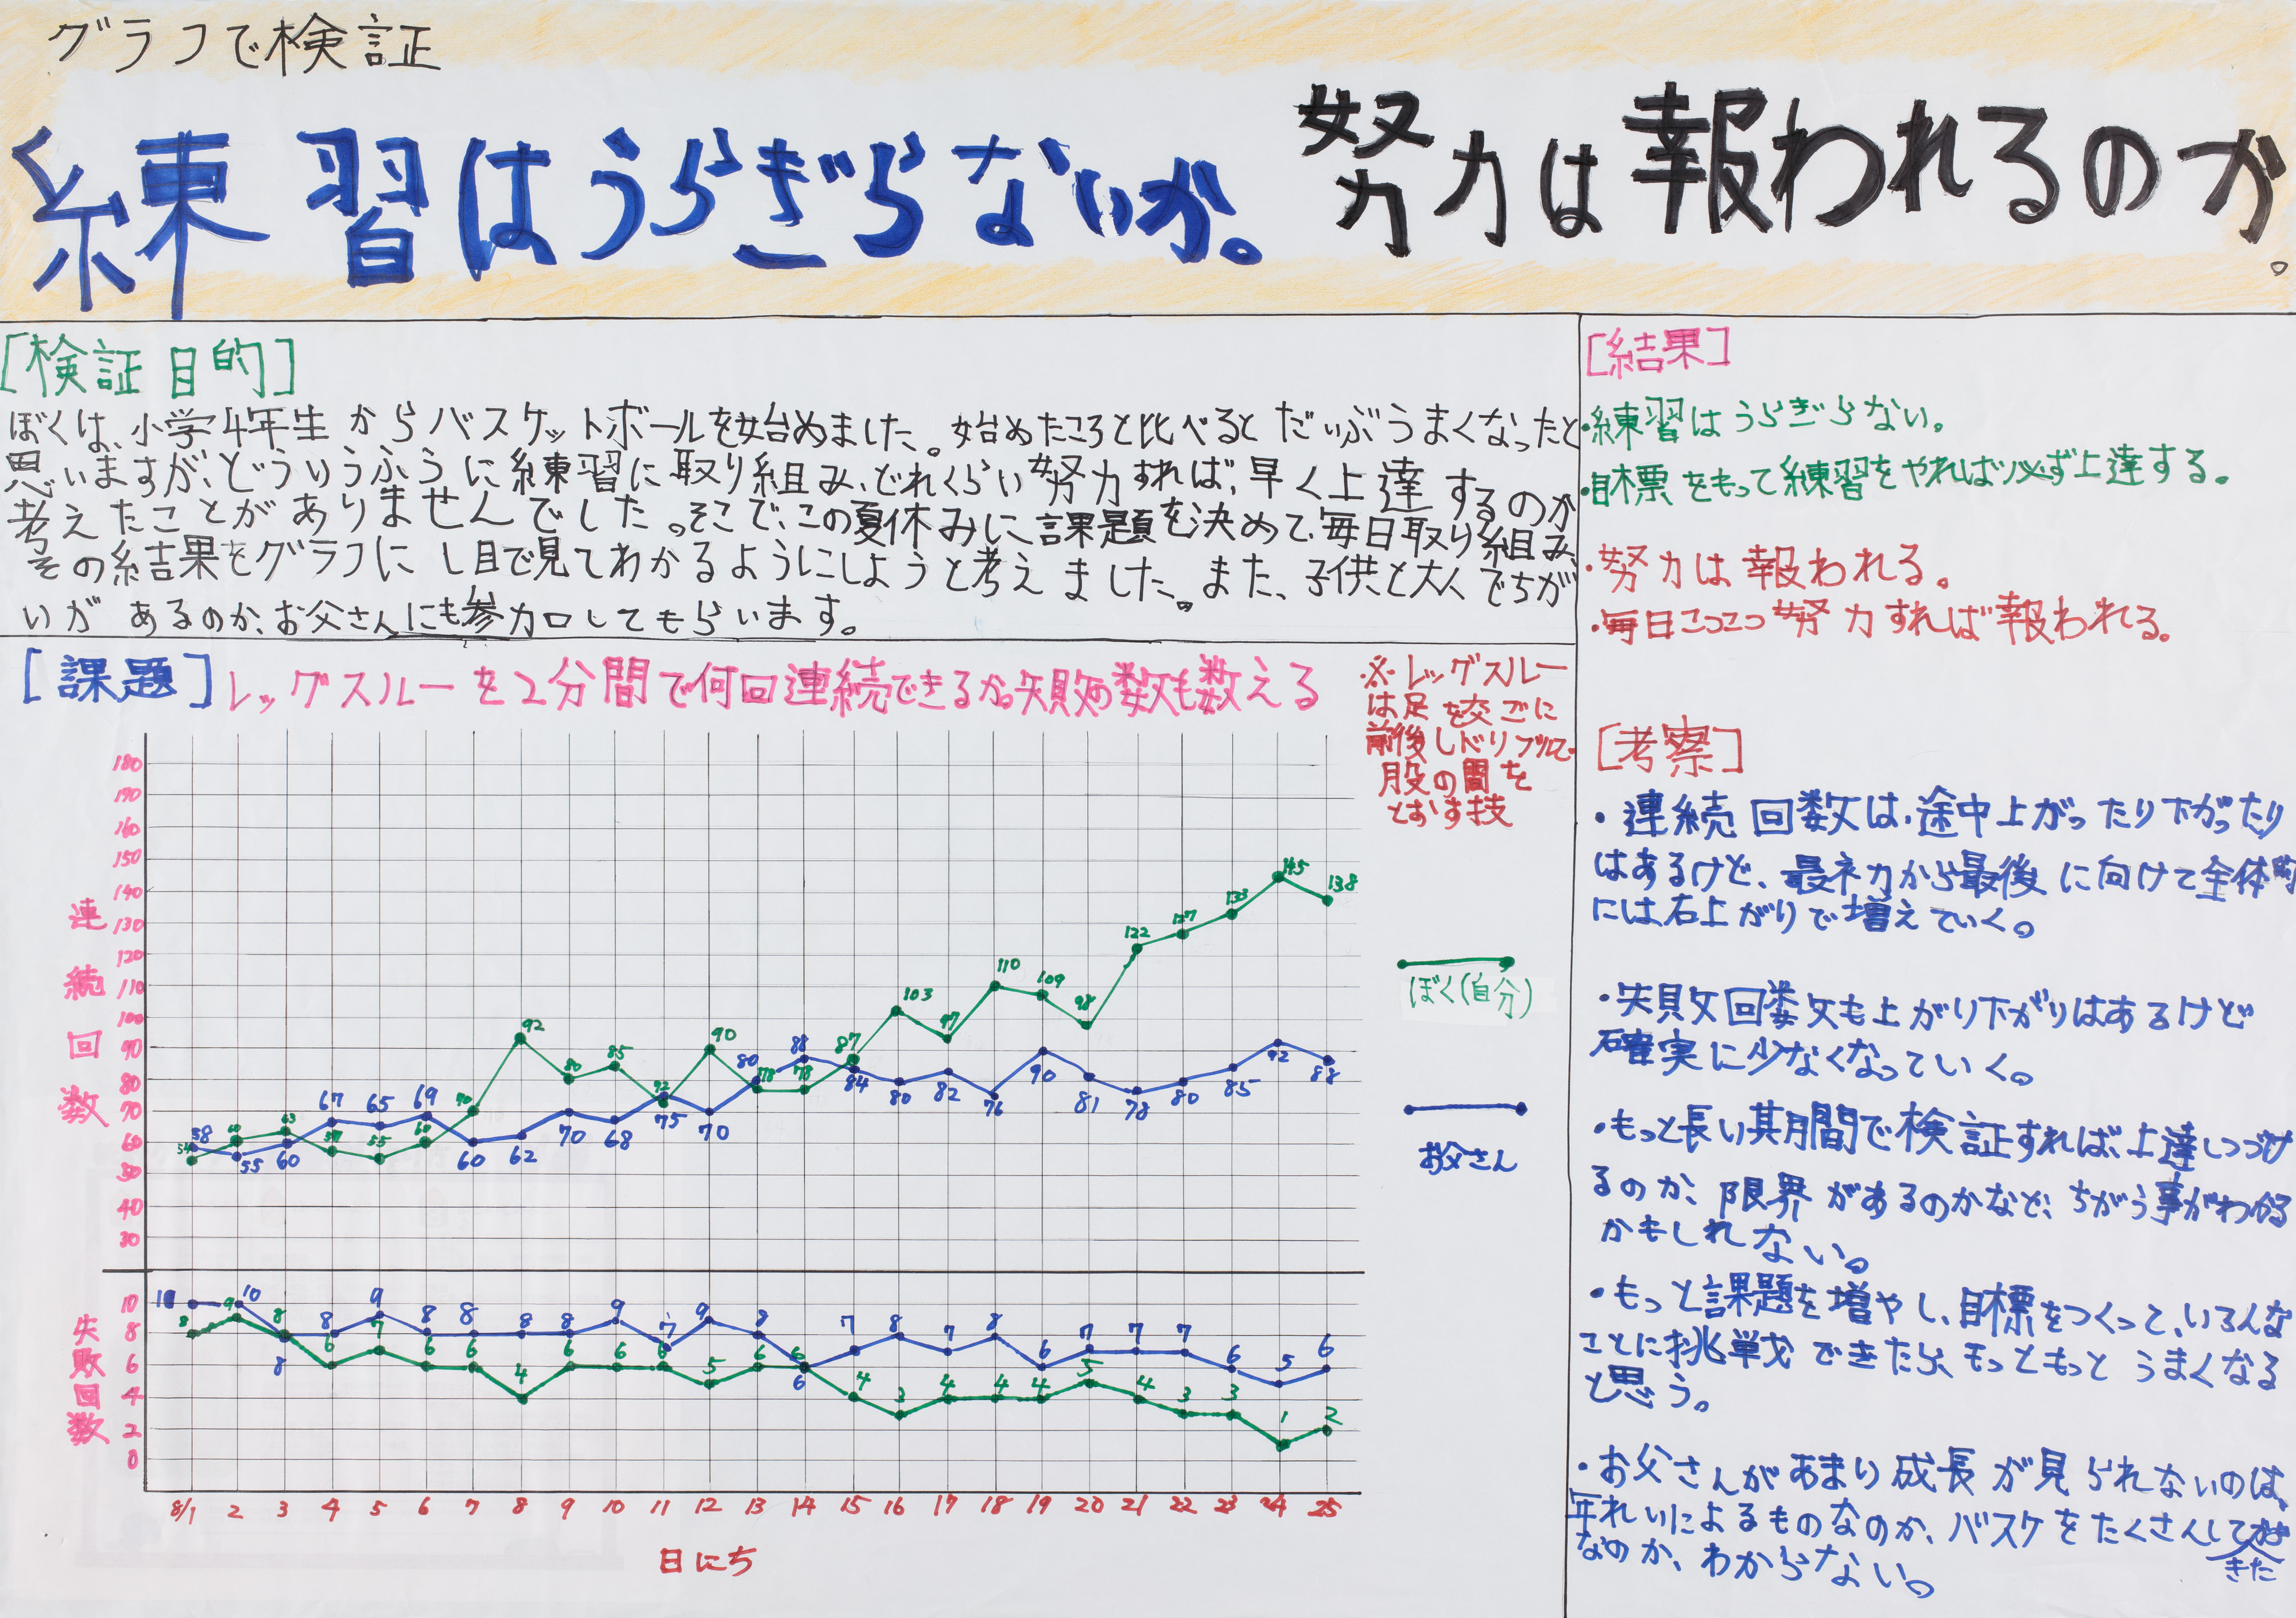 グラフで検証
練習はうらぎらないか。努力は報われるのか。
[検証目的]
ぼくは、小学4年生からバスケットボールを始めました。始めたころと比べるとだいぶうまくなったと
思いますが、どういうふうに練習に取り組み、どれくらい努力すれば、早く上達するのか
考えたことがありませんでした。そこで、この夏休みに課題を決めて、毎日取り組み、
その結果をグラフにし目で見てわかるようにしようと考えました。また、子供と大人でちが
いがあるのか、お父さんにも参加してもらいます。
[課題]レッグスルーを2分間で何回連続できるか。失敗の数も数える
※レッグスルー
は足を交ごに
前後しドリブルで
股の間を
とおす技
連続回数
180
190
160
150
140
130
120
110
100
90
80
70
60
50
40
30
54 60 63 57 55 60 70 92 80 85 72 90 78 78 87 103 97 110 109 98 122 127 133 145 138
58 55 60 67 65 69 60 62 70 68 75 70 80 88 84 80 82 76 90 81 78 80 85 92 88
ぼく(自分)
お父さん
失敗回数
10
8
6
4
2
0
10 10 8 8 9 8 8 8 8 9 7 9 8 6 7 8 7 8 6 7 7 7 6 5 6
8 9 8 6 7 6 6 4 6 6 6 5 6 6 4 3 4 4 4 5 4 3 3 1 2
8/1 2 3 4 5 6 7 8 9 10 11 12 13 14 15 16 17 18 19 20 21 22 23 24 25
日にち
[結果]
・練習はうらぎらない。
・目標をもって練習をやれば必ず上達する。
・努力は報われる。
・毎日こつこつ努力すれば報われる。
[考察]
・連続回数は、途中上がったり下がったり
はあるけど、最初から最後に向けて全体的
には右上がりで増えていく。
・失敗回数も上がり下がりはあるけど
確実に少なくなっていく。
・もっと長い期間で検証すれば、上達しつづけ
るのか、限界があるのかなど、ちがう事がわかる
かもしれない。
・もっと課題を増やし、目標をつくって、いろんな
ことに挑戦できたら、もっともっとうまくなる
と思う。
・お父さんがあまり成長が見られないのは、
年れいによるものなのか、バスケをたくさんしてきた
なのか、わからない。